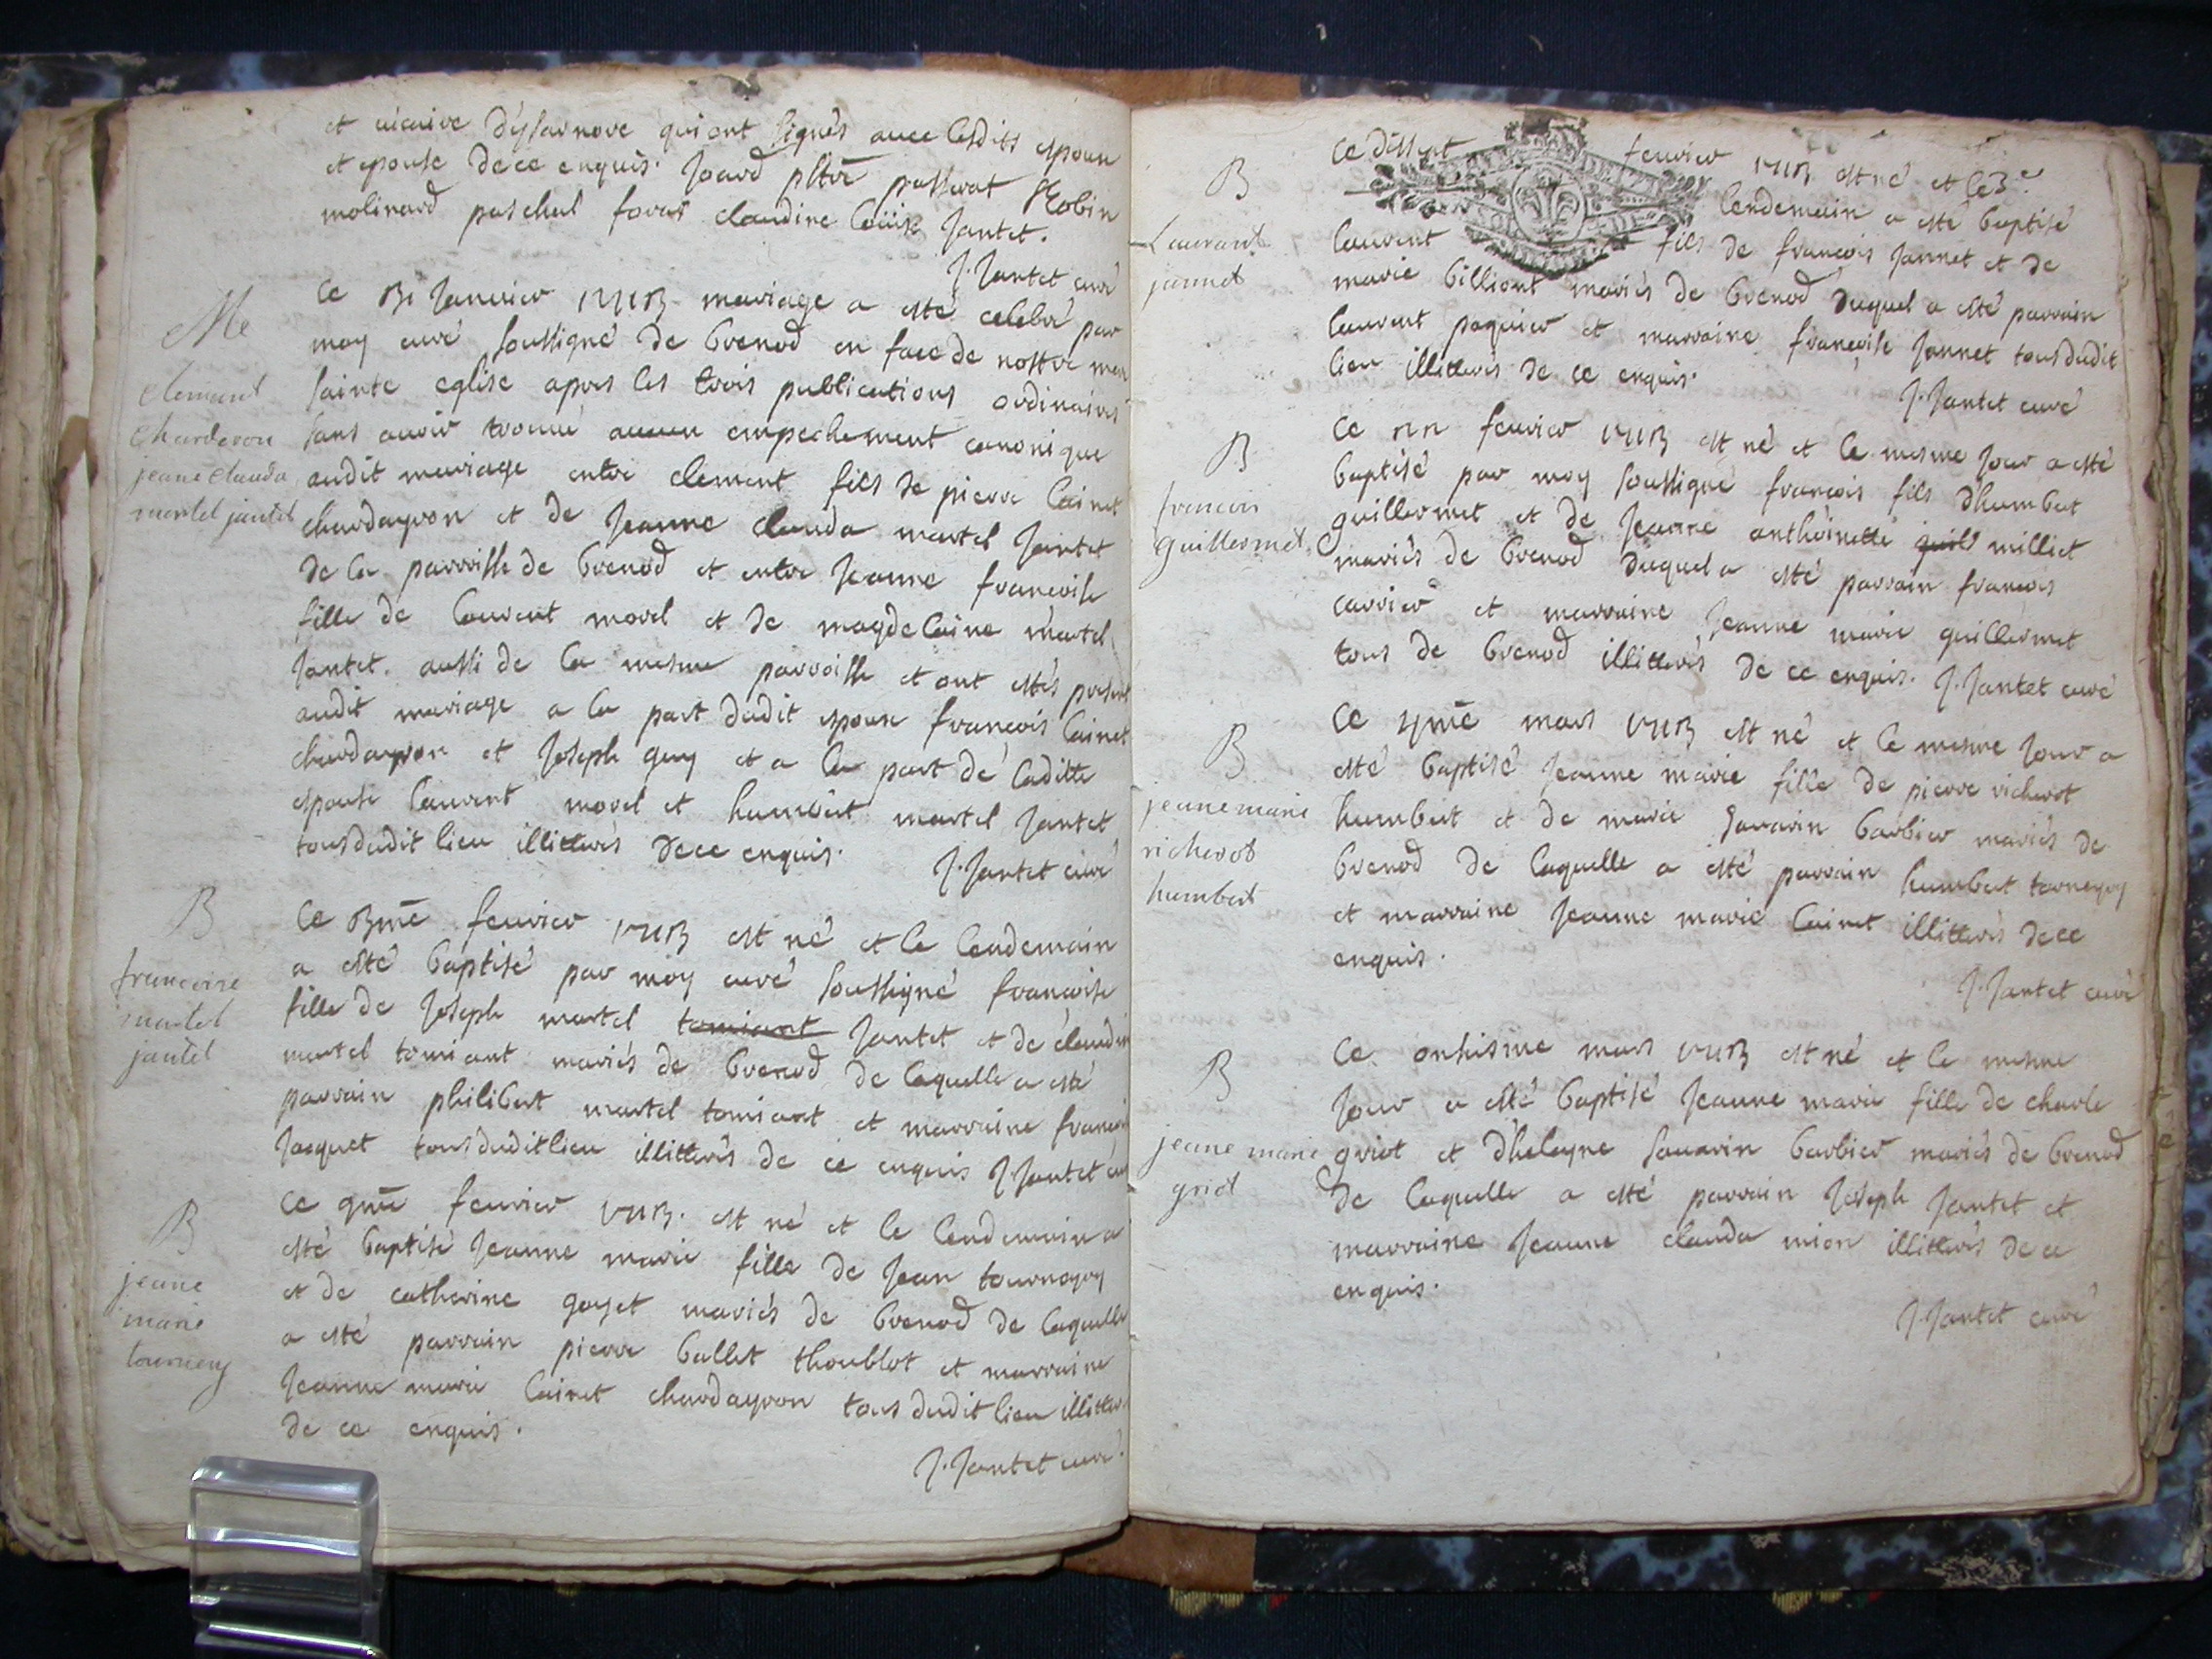 et vicaire d'ysarnore qui ont signés avec lesdits epoux
et epouse de ce enquis. Joard pbtre passerat Robin
molinard paschal foras claudine Loüise Jantet.
J. Jantet curé
Me
clement
charderon
jeane clauda
martel jantel
Ce janvier mariage a esté celebré par
moy curé soussigné de brenod en face de nostre mere
sainte eglise apres les trois publications ordinaires
sans avoir trouvé aucun empechement canonique
audit mariage entre clement fils de pierre Cairet
chardayron et de Jeanne clauda martel Jantet
de la parroisse de brenod et entre Jeanne francoise
fille de Laurent morel et de magdelaine martel
Jantet. aussi de la mesme parroisse et ont estés present
audit mariage a la part dudit epoux francois Cairet
chardayron et Joseph guy et a la part de laditte
epouse laurent morel et humbert martel Jantet
tous dudit lieu illitterés de ce enquis.
J. Jantet curé
B
francoise
martel
jantel
Ce fevrier est né et le lendemain
a esté baptisé par moy curé soussigné francoise
fille de Joseph martel tomiant Jantet et de claudine
martel tomiant mariés de brenod de laquelle a esté
parrain philibert martel tomiant et marraine francoise
Jacquet tous dudit lieu illitterés de ce enquis J. Jantet curé
B
jeane
marie
tournery
Ce 9me fevrier est né et le lendemain a
esté baptisé Jeanne marie fille de Jean tournayry
et de catherine goyet mariés de brenod de laquelle
a esté parrain pierre ballet thoublot et marraine
Jeanne marie Cairet chardayron tous dudit lieu illitter.
de ce enquis.
J. Jantet curé.
B
Laurant
jannet
Ce disset fevrier est né et le
lendemain a esté baptisé
laurent fils de francois Jannet et de
marie billiont mariés de brenod duquel a esté parrain
laurent paquier et marraine francoise Jannet tous dudit
lieu illitterés de ce enquis.
J. Jantet curé
B
francois
guillermet
Ce fevrier est né et le mesme Jour a esté
baptisé par moy soussigné francois fils d'humbert
guillermet et de Jeanne anthoinette milliet
mariés de brenod duquel a esté parrain francois
carrier et marraine Jeanne marie guillermet
tous de brenod illitterés de ce enquis. J. Jantet curé
B
jeanne marie
richerot
humbert
Ce mars est né et le mesme Jour a
esté baptisé Jeanne marie fille de pierre richerot
humbert et de marie savarin barbier mariés de
brenod de laquelle a esté parrain humbert
et marraine Jeanne marie Cairet illitterés de ce
enquis.
J. Jantet curé
B
jeane marie
griot
Ce onsisme mars est né et le mesme
Jour a esté baptisé Jeanne marie fille de charle
griot et d'helayne savarin barbier mariés de brenod
de laquelle a esté parrain Joseph Jantet et
marraine Jeanne clauda mion illitterés de ce
enquis.
J. Jantet curé